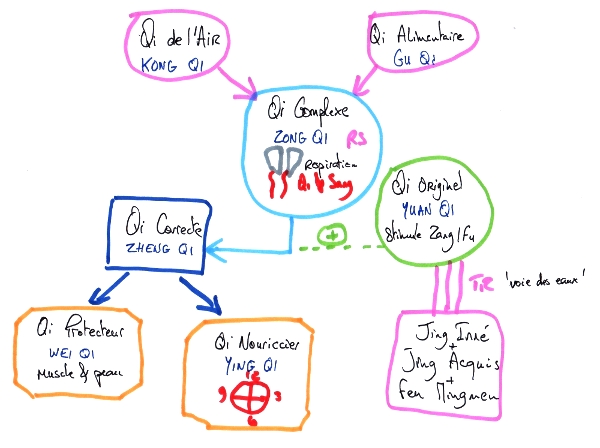 Qi de l'Air
KONG QI
Qi Alimentaire
GU Qi
Qi Complexe
ZONG QI
RS
Respiration
Qi Sang
Qi Originel
YUAN QI
Stimule Zang/Fu
+
Qi Correcte
ZHENG QI
TR 'voie des eaux'
Qi Protecteur
WEI QI
Muscle & peau
Qi Nouriccier
YING QI
12
9 3
6
Jing Inné
+
Jing Acquis
+
Feu Mingmen